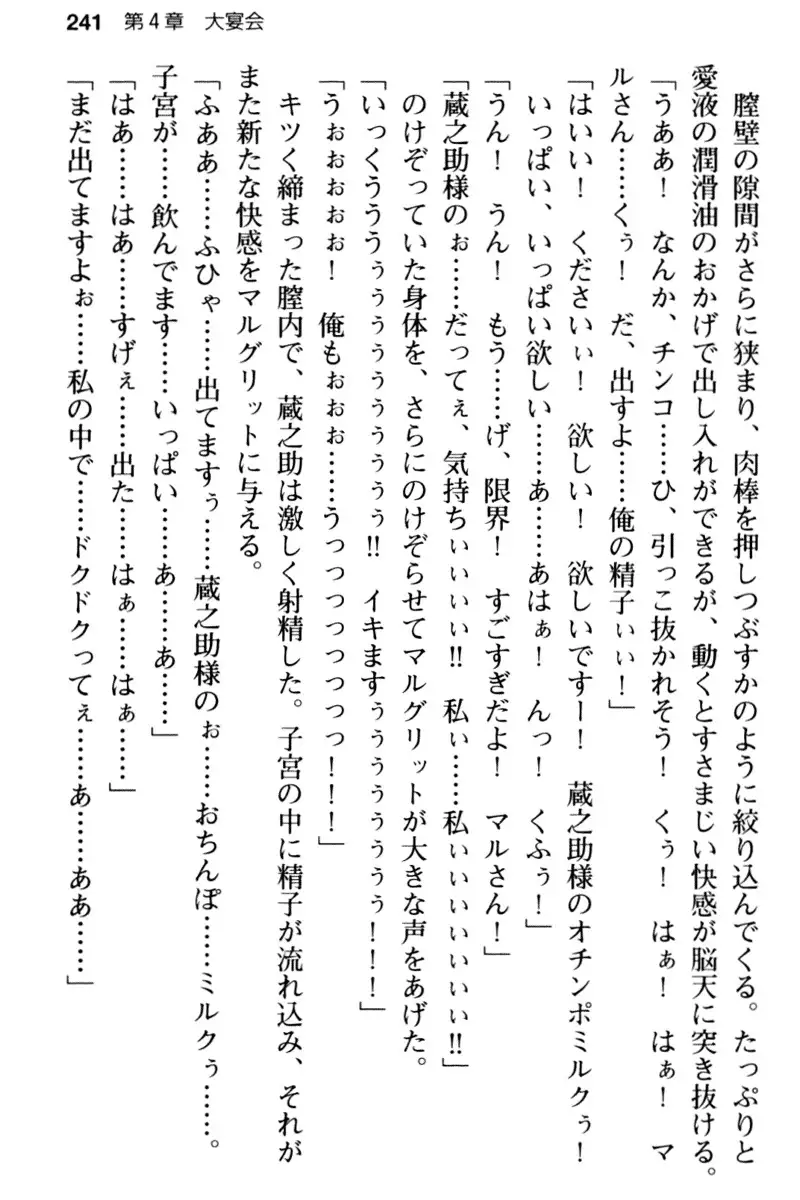 241 第4章 大宴会
膣壁の隙間がさらに狭まり、肉棒を押しつぶすかのように絞り込んでくる。たっぷりと
愛液の潤滑油のおかげで出し入れができるが、動くとすさまじい快感が脳天に突き抜ける。
「うああ！ なんか、チンコ……ひ、引っこ抜かれそう！ くぅ！ はぁ！ はぁ！ マ
ルさん……くぅ！ だ、出すよ……俺の精子ぃぃ！」
「はいい！ くださいぃ！ 欲しい！ 欲しいですー！ 蔵之助様のオチンポミルクぅ！
いっぱい、いっぱい欲しい……あ……あはぁ！ んっ！ くふぅ！」
「うん！ うん！ もう……げ、限界！ すごすぎだよ！ マルさん！」
「蔵之助様のぉ……だってぇ、気持ちぃぃぃぃ!! 私ぃ……私ぃぃぃぃぃぃぃ!!」
のけぞっていた身体を、さらにのけぞらせてマルグリットが大きな声をあげた。
「いっくうううぅぅぅぅぅぅぅぅぅぅ!! イキますぅぅぅぅぅぅぅぅぅ！！！」
「うぉぉぉぉぉ！ 俺もぉぉぉ……うっっっっっっっっ！！！」
キツく締まった膣内で、蔵之助は激しく射精した。子宮の中に精子が流れ込み、それが
また新たな快感をマルグリットに与える。
「ふああ……ふひゃ……出てますぅ……蔵之助様のぉ……おちんぽ……ミルクぅ……。
子宮が……飲んでます……いっぱい……あ……あ……」
「はあ……はあ……すげぇ……出た……はぁ……はぁ……」
「まだ出てますよぉ……私の中で……ドクドクってぇ……あ……ああ……」